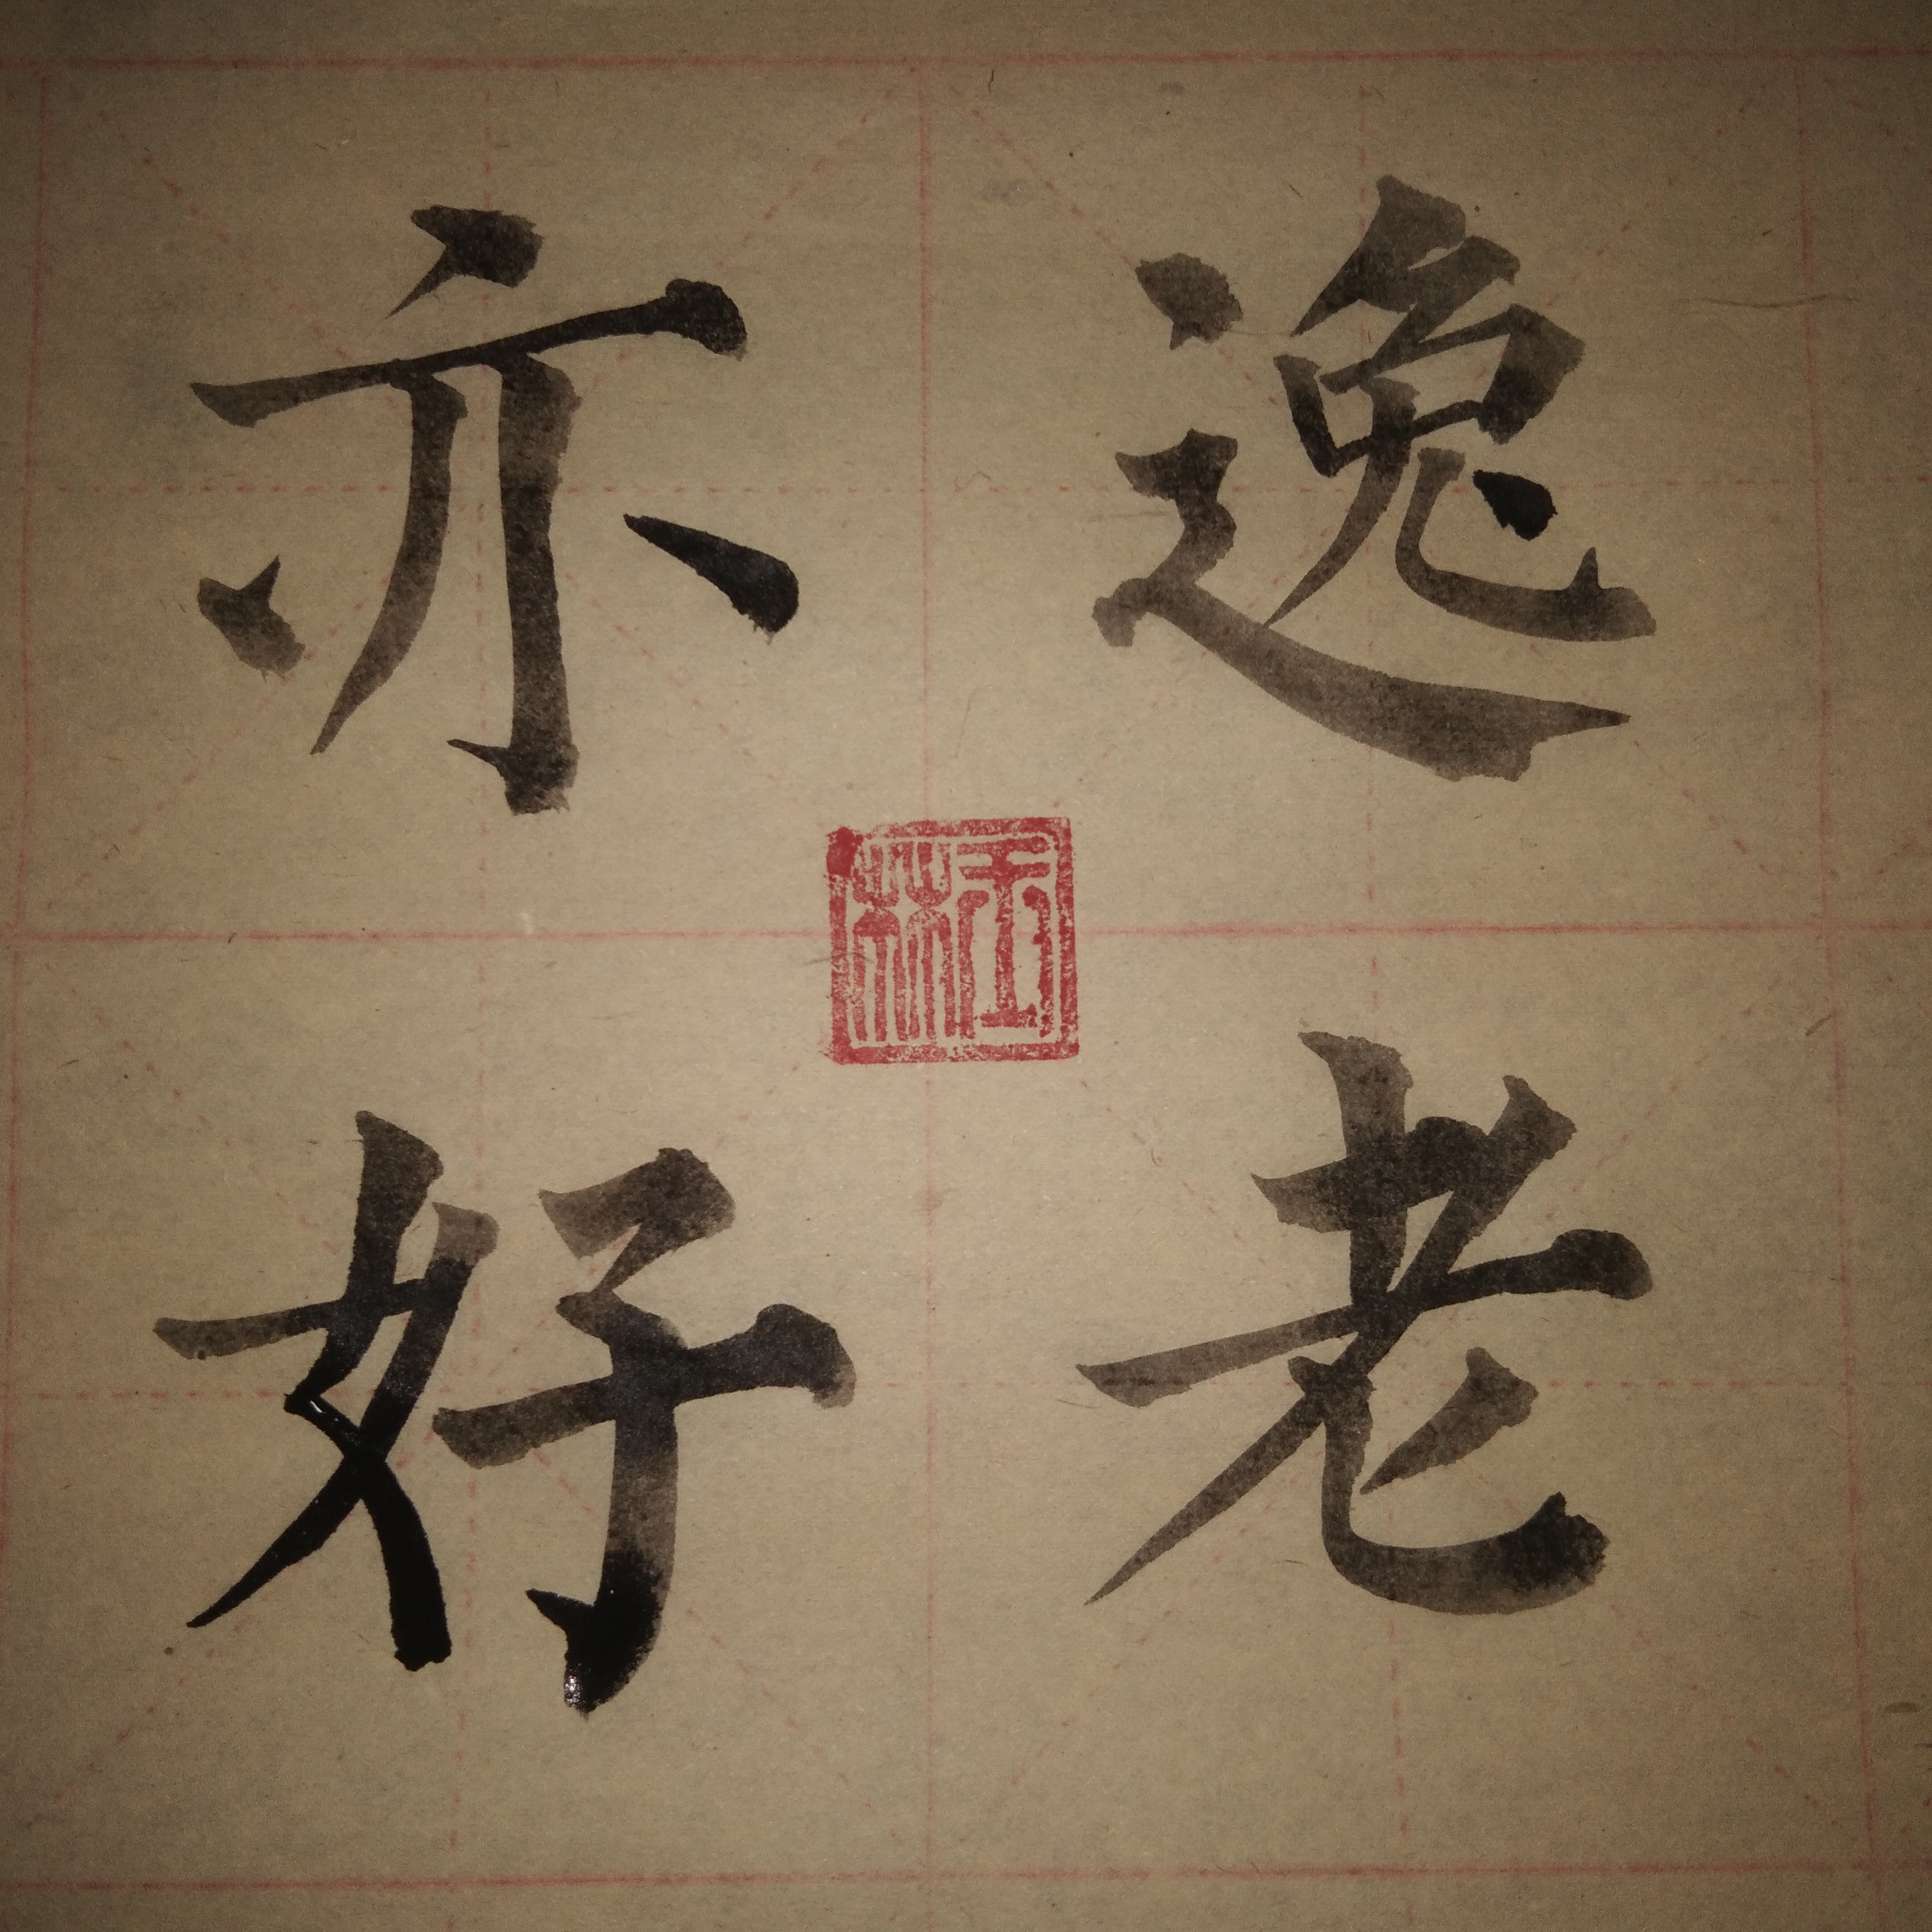 逸老
亦好